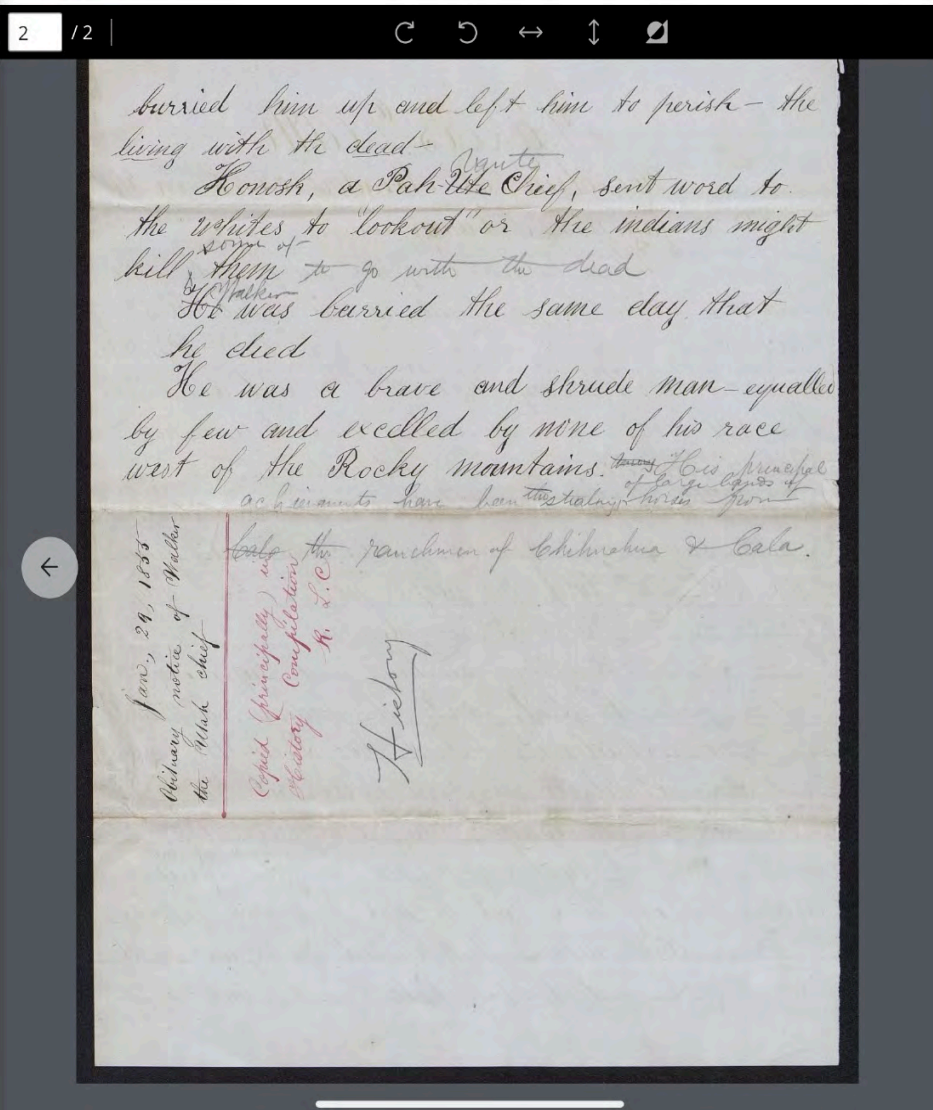 2 / 2
burried him up and left him to perish – the
living with th dead –
vante
Konosh, a Pah-Ute Chief, sent word to
the whites to "lookout" or the indians might
some of
kill them to go with the dead
Walker
He was burried the same day that
he died
He was a brave and shrude man – equalled
by few and excelled by none of his race
west of the Rocky mountains. His principal
of large bands of
achievments have been the stealing horses from
Cala the ranchmen of Chihuahua & Cala.
Jan., 29, 1855
Obituary notice of Walker
the Utah chief
Copied (principally) in
History Compilation
R. L. C.
History